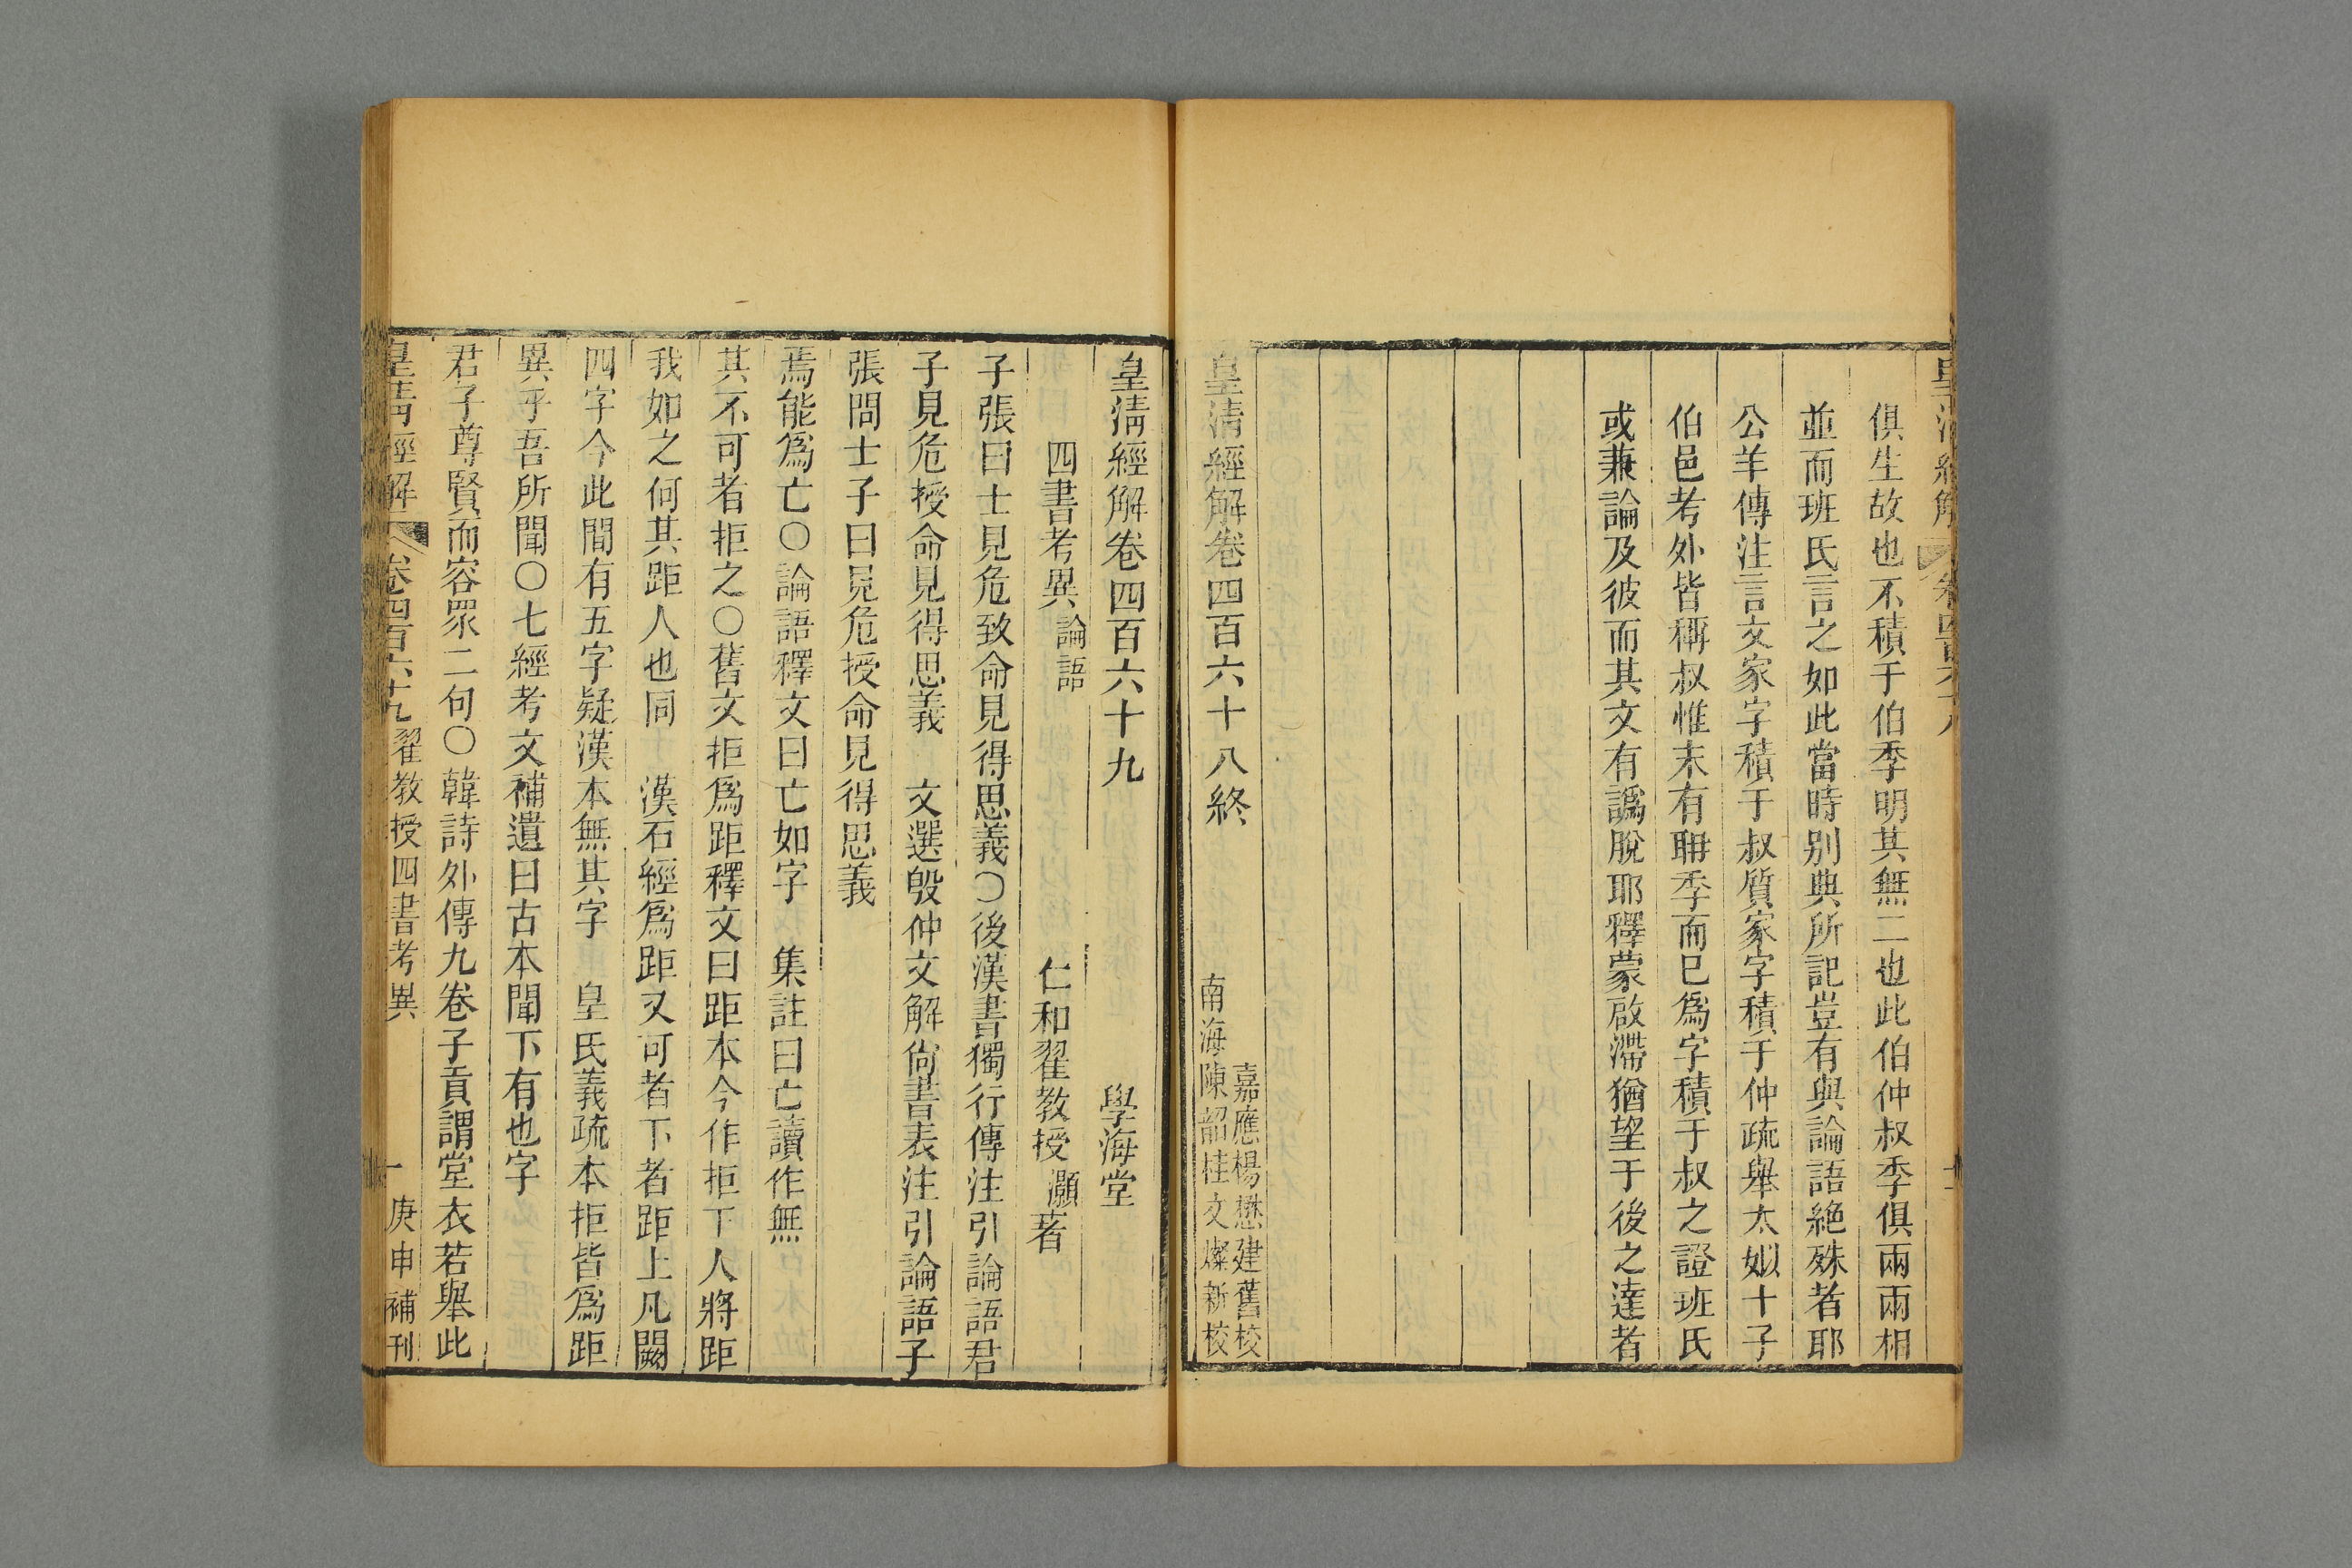 皇清經解 卷四百六十八
俱生故也不積于伯季明其無二也此伯仲叔季俱兩兩相
並而班氏言之如此當時別典所記豈有與論語絕殊者耶
公羊傳注言文家字積于叔質家字積于仲疏舉太姒十子
伯邑考外皆稱叔惟末有聃季而已爲字積于叔之證班氏
或兼論及彼而其文有譌脫耶釋蒙啟滯猶望于後之達者
皇清經解卷四百六十八終
嘉應楊懋建舊校
南海陳韶桂文燦新校
皇清經解卷四百六十九 學海堂
四書考異 論語 仁和翟教授灝著
子張曰士見危致命見得思義〇後漢書獨行傳注引論語君
子見危授命見得思義 文選殷仲文解尙書表注引論語子
張問士子曰見危授命見得思義
焉能爲亡〇論語釋文曰亡如字 集註曰亡讀作無
其不可者拒之〇舊文拒爲距釋文曰距本今作拒下人將距
我如之何其距人也同 漢石經爲距又可者下者距上凡闕
四字今此間有五字疑漢本無其字 皇氏義疏本拒皆爲距
異乎吾所聞〇七經考文補遺曰古本聞下有也字
君子尊賢而容眾二句〇韓詩外傳九卷子貢謂堂衣若舉此
皇清經解 卷四百六十九 翟教授四書考異 一 庚申補刊